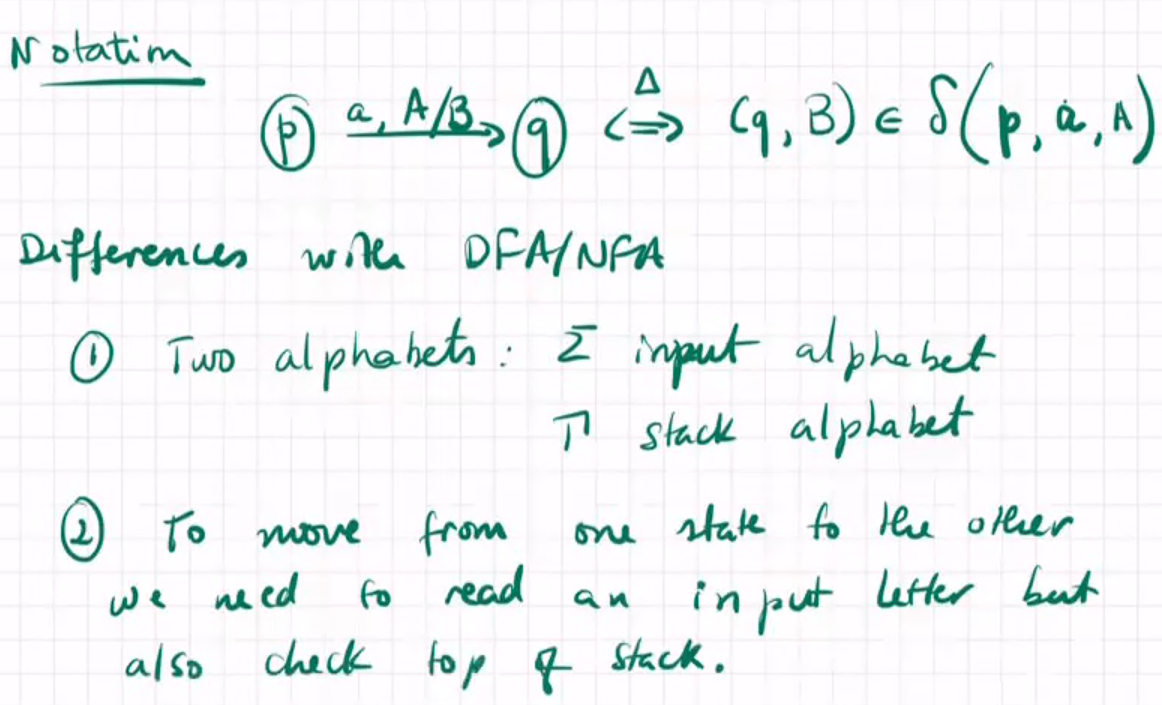 Notation
p a, A/B q ⟺ Δ (q, B) ∈ δ(p, a, A)
Differences with DFA/NFA
① Two alphabets: Σ input alphabet
Γ stack alphabet
② To move from one state to the other
we need to read an input letter but
also check top of stack.